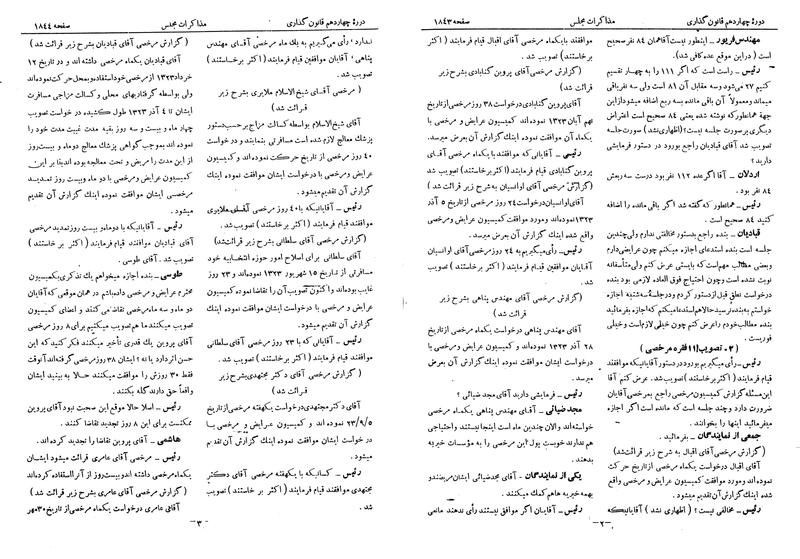 دورهٔ چهاردهم قانون گذاری
مذاکرات مجلس
صفحه ۱۸۴۳
مهندس فریور - اینطور نیست آقا همان ۸۴ نفر صحیح
است ( در این موقع عده کافی شد )
رئیس - راست است که اگر ۱۱۱ را به چهار تقسیم
کنیم ۲۷ میشود و سه مقابل آن ۸۱ است ولی سه نفر باقی
میماند و معمولاً آن باقی مانده به سه ربع اضافه میشود از این
جهة همانطور که نوشته شده یعنی ۸۴ صحیح است اعتراض
دیگری بر صورت جلسه نیست ؟ (اظهاری نشد) صورت جلسه
تصویب شد آقای قبادیان راجع بورود در دستور فرمایشی
دارید ؟
اردلان - آقا اگر عده ۱۱۲ نفر بود درست سه ربعش
۸۴ نفر بود .
رئیس - همانطور که گفته شد اگر باقی مانده را اضافه
کنید ۸۴ صحیح است .
قبادیان - بنده راجع بدستور مخالفتی ندارم ولی چندین
جلسه است بنده استدعای اجازه میکنم چون عرایضی دارم
و بعضی مطالب مهم است که بایستی عرض کنم ولی متأسفانه
نوبت نشده است و چون احتیاج فوق العاده لازمی بود بنده
درخواست نطق قبل از دستور کردم و در جلسه سه شنبه اجازه
خواستم به بنده نرسید حالا هم استدعا میکنم که اجازه بفرمائید
بنده مطالب خودم را عرض کنم چون خیلی لازم است و خیلی
فوریست .
( ۲ - تصویب ۱۱ فقره مرخصی )
رئیس - رأی میگیریم بورود در دستور آقایانیکه موافقند
قیام فرمایند ( اکثر برخاستند ) تصویب شد . عرض کنم آقا
این مسئله گزارش کمیسیون مرخصی راجع بمرخصی آقایان
ضرورت دارد و چند جلسه است که مانده است اگر اجازه
میفرمائید اینها را بخوانند .
جمعی از نمایندگان - بفرمائید .
( گزارش مرخصی آقای اقبال به شرح زیر قرائت شد )
آقای اقبال درخواست یکماه مرخصی از تاریخ حرکت
نموده اند و مورد موافقت کمیسیون عرایض و مرخصی واقع
شده اینك گزارش آن تقدیم میشود .
رئیس - مخالفی نیست ؟ ( اظهاری نشد ) آقایانیکه
موافقند با یکماه مرخصی آقای اقبال قیام فرمایند ( اکثر
برخاستند ) تصویب شد .
(گزارش مرخصی آقای پروین گنابادی بشرح زیر
قرائت شد)
آقای پروین گنابادی درخواست ۳۸ روز مرخصی از تاریخ
نهم آبان ۱۳۲۳ نموده اند کمیسیون عرایض و مرخصی با
یکماه آن موافقت نموده اینك گزارش آن بعرض میرسد .
رئیس - آقایانی که موافقند با یکماه مرخصی آقای
پروین گنابادی قیام فرمایند (اکثر برخاستند) تصویب شد
(گزارش مرخصی آقای اوانسیان به شرح زیر قرائت شد )
آقای اوانسیان درخواست ۲۴ روز مرخصی از تاریخ ۵ آذر
۱۳۲۳ نموده اند و مورد موافقت کمیسیون عرایض و مرخصی
واقع شده اینك گزارش آن بعرض میرسد .
رئیس - رأی میگیریم به ۲۴ روز مرخصی آقای اوانسیان
آقایان موافقین قیام فرمایند ( اکثر برخاستند ) تصویب
شد .
( گزارش مرخصی آقای مهندس پناهی بشرح زیر
قرائت شد )
آقای مهندس پناهی درخواست یکماه مرخصی از تاریخ
۲۸ آذر ۱۳۲۳ نموده اند و کمیسیون عرایض و مرخصی با
درخواست ایشان موافقت نموده اینك گزارش آن بعرض
میرسد .
رئیس - فرمایشی دارید آقای مجد ضیائی ؟
مجد ضیائی - آقای مهندس پناهی یکماه مرخصی
خواسته اند و الان چندین ماه است اینجا نیستند و احتیاجی
هم ندارند خوبست پول این مرخصی را به مؤسسات خیریه
بدهند .
یکی از نمایندگان - آقای مجد ضیائی ایشان مریضند و
بهمه خیریه ها هم کمك میکنند .
رئیس - آقایان اگر موافق نیستند رأی ندهند مانعی
-۲-
دورهٔ چهاردهم قانون گذاری
مذاکرات مجلس
صفحه ۱۸۴۴
ندارد . رأی می گیریم به یك ماه مرخصی آقای مهندس
پناهی ؛ آقایان موافقین قیام فرمایند ( اکثر برخاستند )
تصویب شد .
( مرخصی آقای شیخ الاسلام ملایری بشرح زیر
قرائت شد )
آقای شیخ الاسلام بواسطه کسالت مزاج بر حسب دستور
پزشك معالج لازم شده است مسافرتی بنمایند و درخواست
۴۰ روز مرخصی از تاریخ حرکت نموده اند و کمیسیون
عرایض و مرخصی با درخواست ایشان موافقت نموده اینك
گزارش آن تقدیم میشود .
رئیس - آقایانیکه با ۴۰ روز مرخصی آقای ملایری
موافقند قیام فرمایند ( اکثر برخاستند ) تصویب شد .
(گزارش مرخصی آقای سلطانی بشرح زیر قرائت شد)
آقای سلطانی برای اصلاح امور حوزه انتخابیه خود
مسافرتی از تاریخ ۱۵ شهریور ۱۳۲۳ نموده اند و ۲۳ روز
غایب بوده اند و اکنون تصویب آن را تقاضا نموده کمیسیون
عرایض و مرخصی با درخواست ایشان موافقت نموده اینك
گزارش آن تقدیم میشود .
رئیس - آقایانی که با ۲۳ روز مرخصی آقای سلطانی
موافقند قیام فرمایند ( اکثر برخاستند ) تصویب شد .
( گزارش مرخصی آقای دکتر مجتهدی بشرح زیر
قرائت شد )
آقای دکتر مجتهدی درخواست یکهفته مرخصی از تاریخ
۲۳/۹/۵ نموده اند و کمیسیون عرایض و مرخصی با
درخواست ایشان موافقت نموده اینك گزارش آن تقدیم
میشود .
رئیس - کسانیکه با یکهفته مرخصی آقای دکتر
مجتهدی موافقند قیام فرمایند ( اکثر برخاستند ) تصویب
شد .
( گزارش مرخصی آقای قبادیان بشرح زیر قرائت شد )
آقای قبادیان یکماه مرخصی داشته اند و در تاریخ ۱۲
خرداد ۱۳۲۳ از مرخصی خود استفاده و به محل حرکت نموده اند
ولی بواسطه گرفتاریهای محلی و کسالت مزاجی مسافرت
ایشان تا ۴ آذر ۱۳۲۳ طول کشیده درخواست تصویب
چهار ماه و بیست و سه روز بقیه مدت غیبت مدت خود را
نموده اند بموجب گواهی پزشك معالج دوماه و بیست روز
از این مدت را مریض و تحت معالجه بوده اند بنا بر این
کمیسیون عرایض و مرخصی با دو ماه و بیست روز تمدید
مرخصی ایشان موافقت نموده اینك گزارش آن تقدیم
میشود .
رئیس - آقایانیکه با دو ماه و بیست روز تمدید مرخصی
آقای قبادیان موافقند قیام فرمایند ( اکثر برخاستند )
تصویب شد . آقای طوسی .
طوسی - بنده اجازه میخواهم یك تذکری بکمیسیون
محترم عرایض و مرخصی داده باشم در همان موقعی که آقایان
دو ماه و سه ماه مرخصی تقاضا می کنند و اعضای کمیسیون
تصویب میکنند ما هم تصویب میکنیم برای ۸ روز مرخصی
آقای پروین یك قدری تأخیر میکنند فکر کنید که این
حسن اثر دارد یا نه ؟ ایشان ۳۸ روز مرخصی گرفته اند آنوقت
فقط ۳۰ روزش را موافقت میکنند حالا به بینید ایشان
واقعاً حق دارند گله بکنند .
رئیس - اسلا حالا موقع این صحبت نبود آقای پروین
ممکنست برای این ۸ روز تجدید تقاضا کنند .
هاشمی - آقای پروین تقاضا را تجدید کرده اند .
رئیس - مرخصی آقای عامری قرائت میشود ایشان
یکماه مرخصی داشته اند و بیست روز از آنرا استفاده کرده اند
( گزارش مرخصی آقای عامری بشرح زیر قرائت شد )
آقای عامری درخواست یکماه مرخصی از تاریخ ۳۰ مهر
-۳-